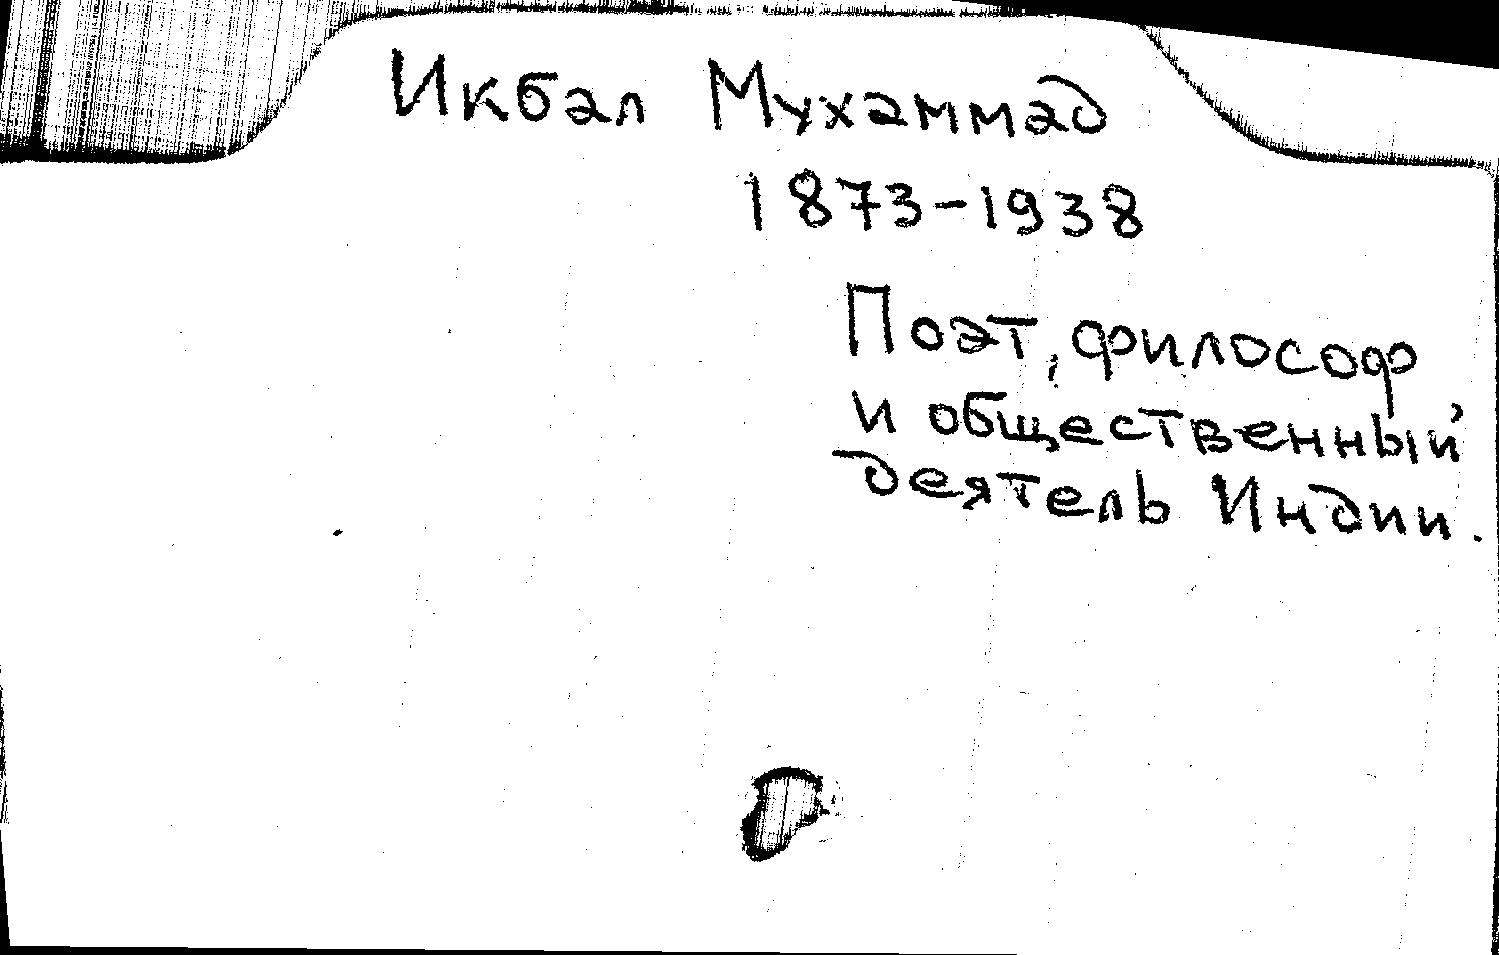 Икбал Мухаммад
1873-1938
Поэт, философ
и общественный
деятель Индии.